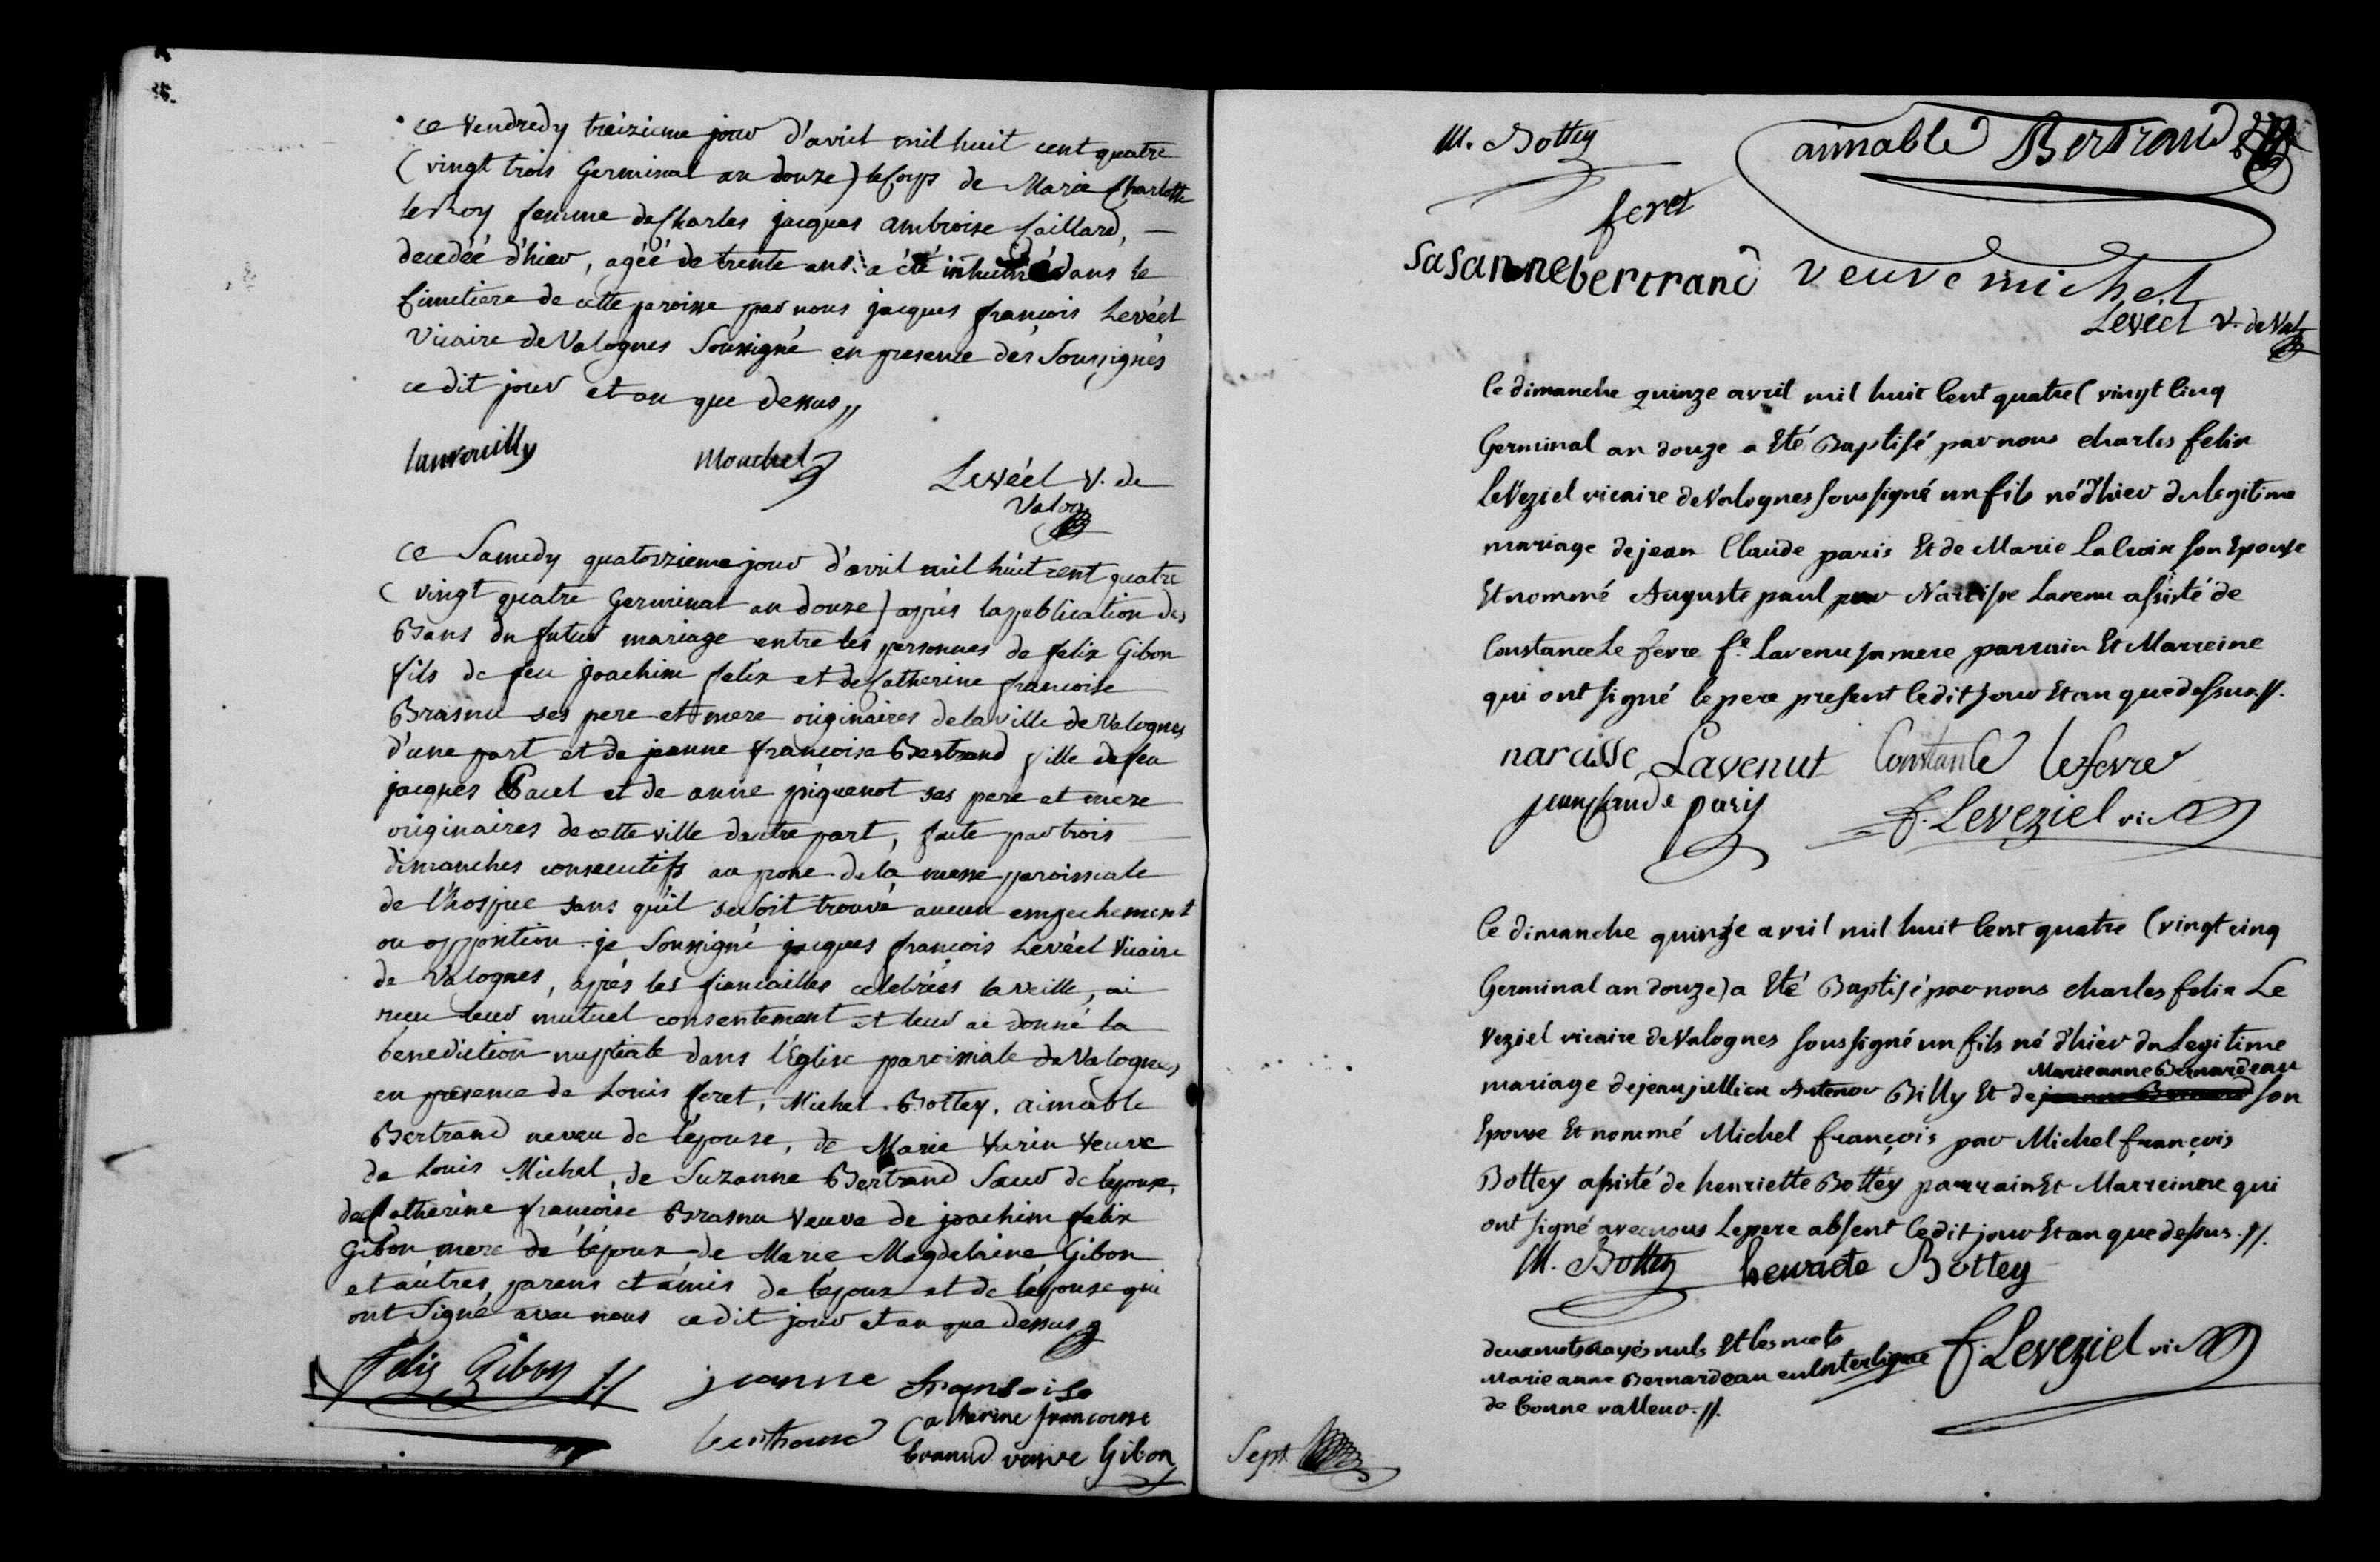 ce vendredy treizieme jour d'avril mil huit cent quatre
(vingt trois Germinal an douze) le Corps de Marie Charlotte
le Roy femme de Charles jacques ambroise Caillard,
decedée d'hier, agée de trente ans a été inhumé dans le
Cimetiere de cette paroisse par nous jacques françois Levéel
Vicaire de Valognes Soussigné en presence des Soussignés
ce dit jour et an que dessus //
Mouchel
Levéel V. de
Valog
ce Samedy quatorzieme jour d'avril mil huit cent quatre
(vingt quatre Germinal an douze) après la publication des
Bans du futur mariage entre les personnes de felix Gibon
fils de feu joachim felix et de Catherine francoise
Brasnu ses pere et mere originaires de la ville de Valognes
d'une part et de jeanne françoise Bertrand fille de feu
jacques Paul et de anne piquenot ses pere et mere
originaires de cette ville dautre part, faite par trois
dimanches consecutifs au prone de la messe paroissiale
de l'hospice sans qu'il se soit trouvé aucun empechement
ou opposition. je Soussigné jacques françois Levéel Vicaire
de Valognes, après les fiancailles celebrées la veille, ai
recu leur mutuel consentement et leur ai donné la
benediction nuptiale dans l'Eglise paroissiale de Valognes
en presence de Louis feret, Michel Bottey, aimable
Bertrand neveu de l'epouse, de Marie Veuve
de Louis Michel, de Suzanne Bertrand Soeur de lepouse,
de Catherine francoise Brasnu Veuve de joachim felix
Gibon mere de l'epoux, de Marie Magdelaine Gibon
et autres, parens et amis de lepoux et de lepouse qui
ont Signé avec nous ce dit jour et an que dessus
Felix Gibon // jeanne fransoise
bertrand Catherine francoise
veuve Gibon
M. Bottey aimable Bertrand
feret
Sasanne bertrand veuve michel
Levéel V. de Val
Ce dimanche quinze avril mil huit Cent quatre (vingt Cinq
Germinal an douze a Eté Baptisé par nous charles felix
LeVeziel vicaire de Valognes soussigné un fils né d'hier du legitime
mariage de jean Claude paris Et de Marie LaCroix son Epouse
Et nommé Auguste paul par Narcisse Lavenu assisté de
Constance Le fevre fe. Lavenu sa mere parrain Et Marreine
qui ont signé le pere present Ce dit jour Et an que dessus.//.
narcisse Lavenut Constance lefevre
jean Claude paris f. Leveziel vic
Ce dimanche quinze avril mil huit Cent quatre (vingt cinq
Germinal an douze) a Eté Baptisé par nous charles felix Le
Veziel vicaire de Valognes soussigné un fils né d'hier du Legitime
Marie anne Bernardeau
mariage de jean jullien Antenor Billy Et de jeanne Bernard son
Epouse Et nommé Michel françois par Michel françois
Bottey assisté de henriette Bottey parrain Et Marreine qui
ont signé avec nous Le pere absent Ce dit jour Et an que dessus.//.
M. Bottey Bottey
deux mots rayés nuls Et les mots
Marie anne Bernardeau en Interligne f. Leveziel vic
de bonne valleur.//.
Sept